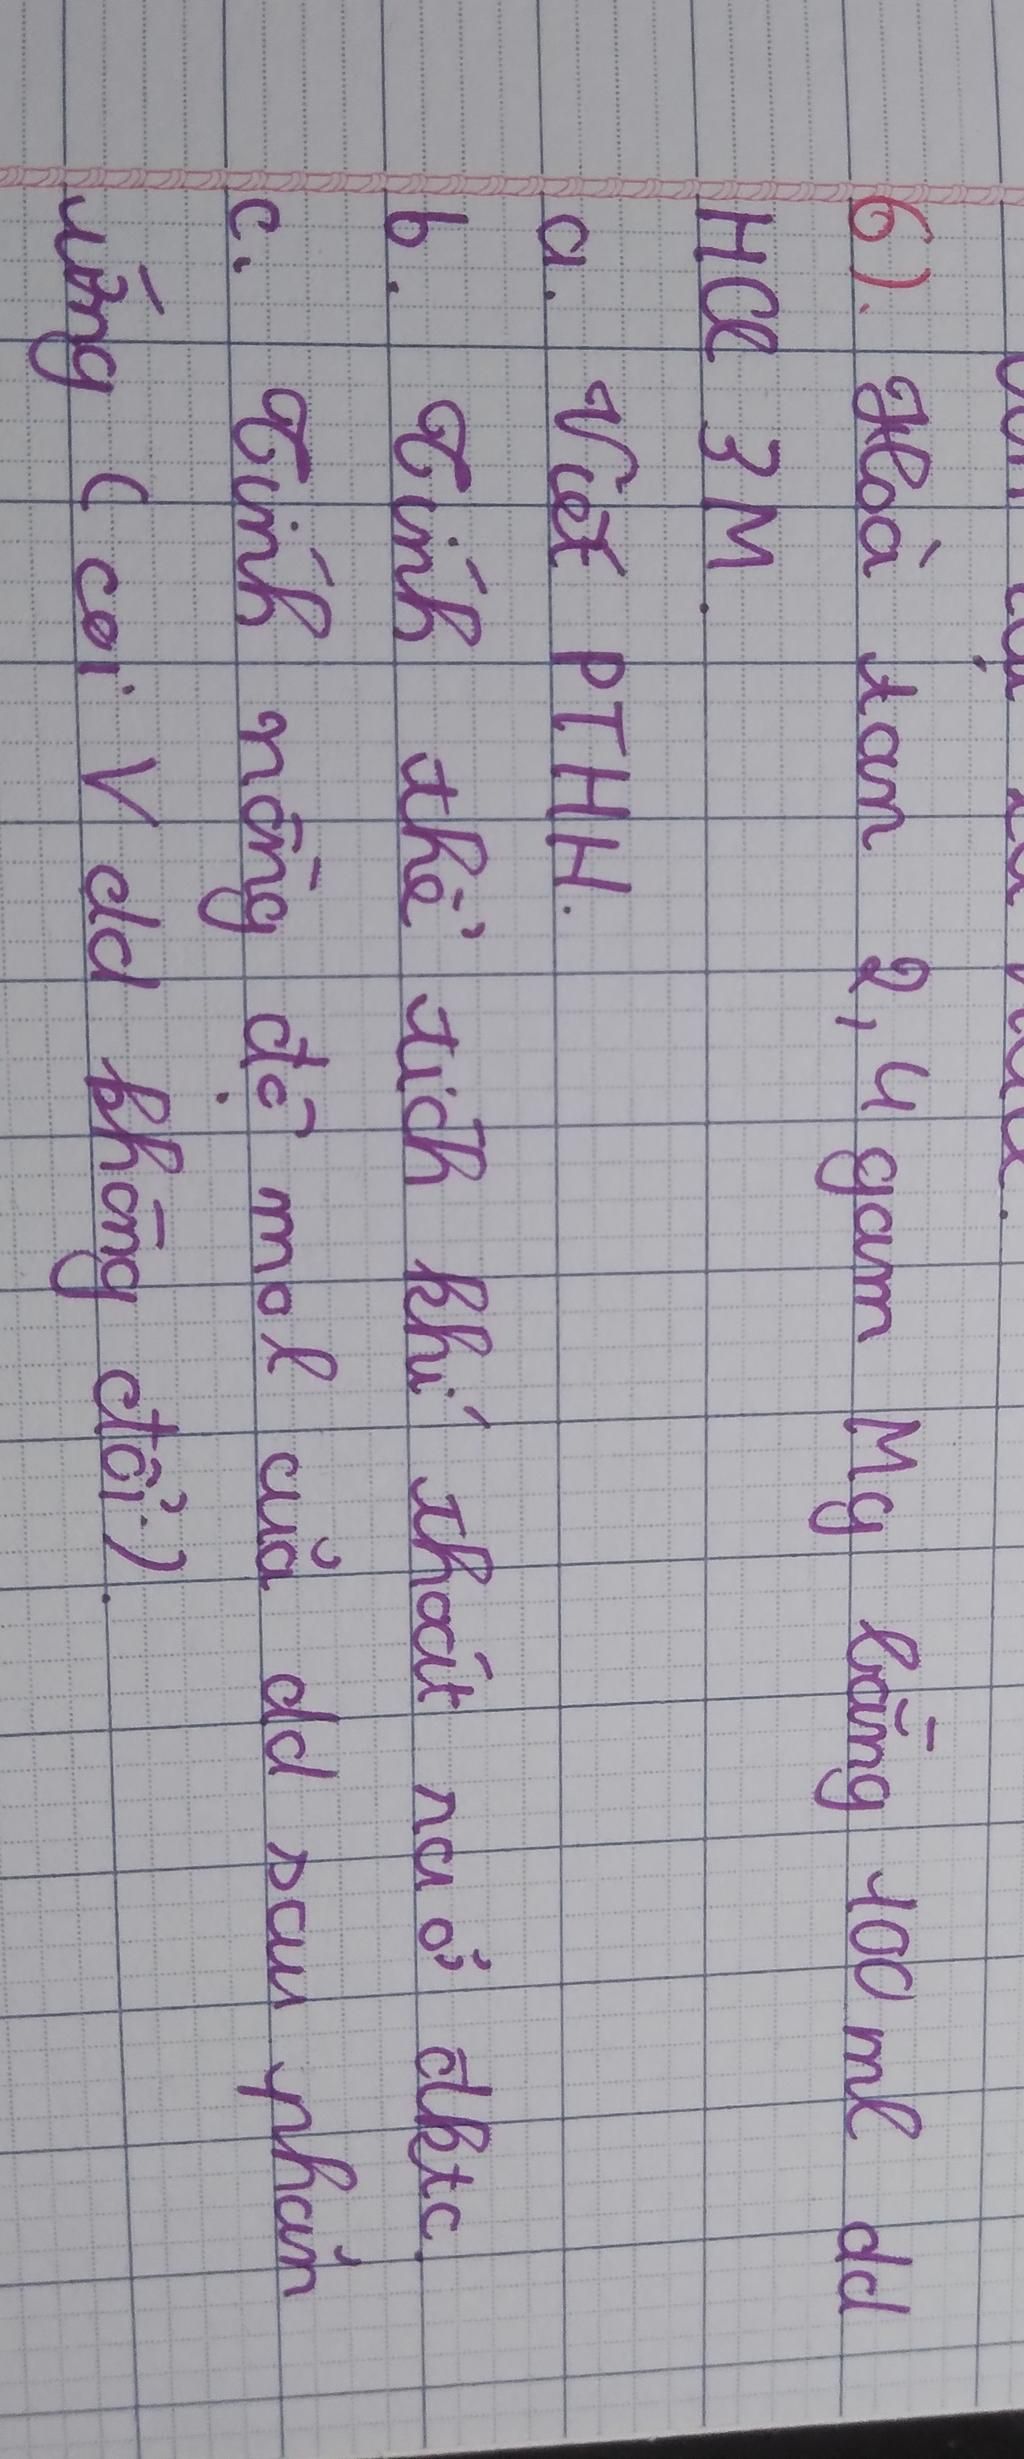 6). Hoà tan 2,4 gam Mg bằng 100 ml dd
HCl 3M.
a. Viết PTHH.
b. Tính thể tích khí thoát ra ở đktc.
c. Tính nồng độ mol của dd sau phản
ứng (coi V dd không đổi).